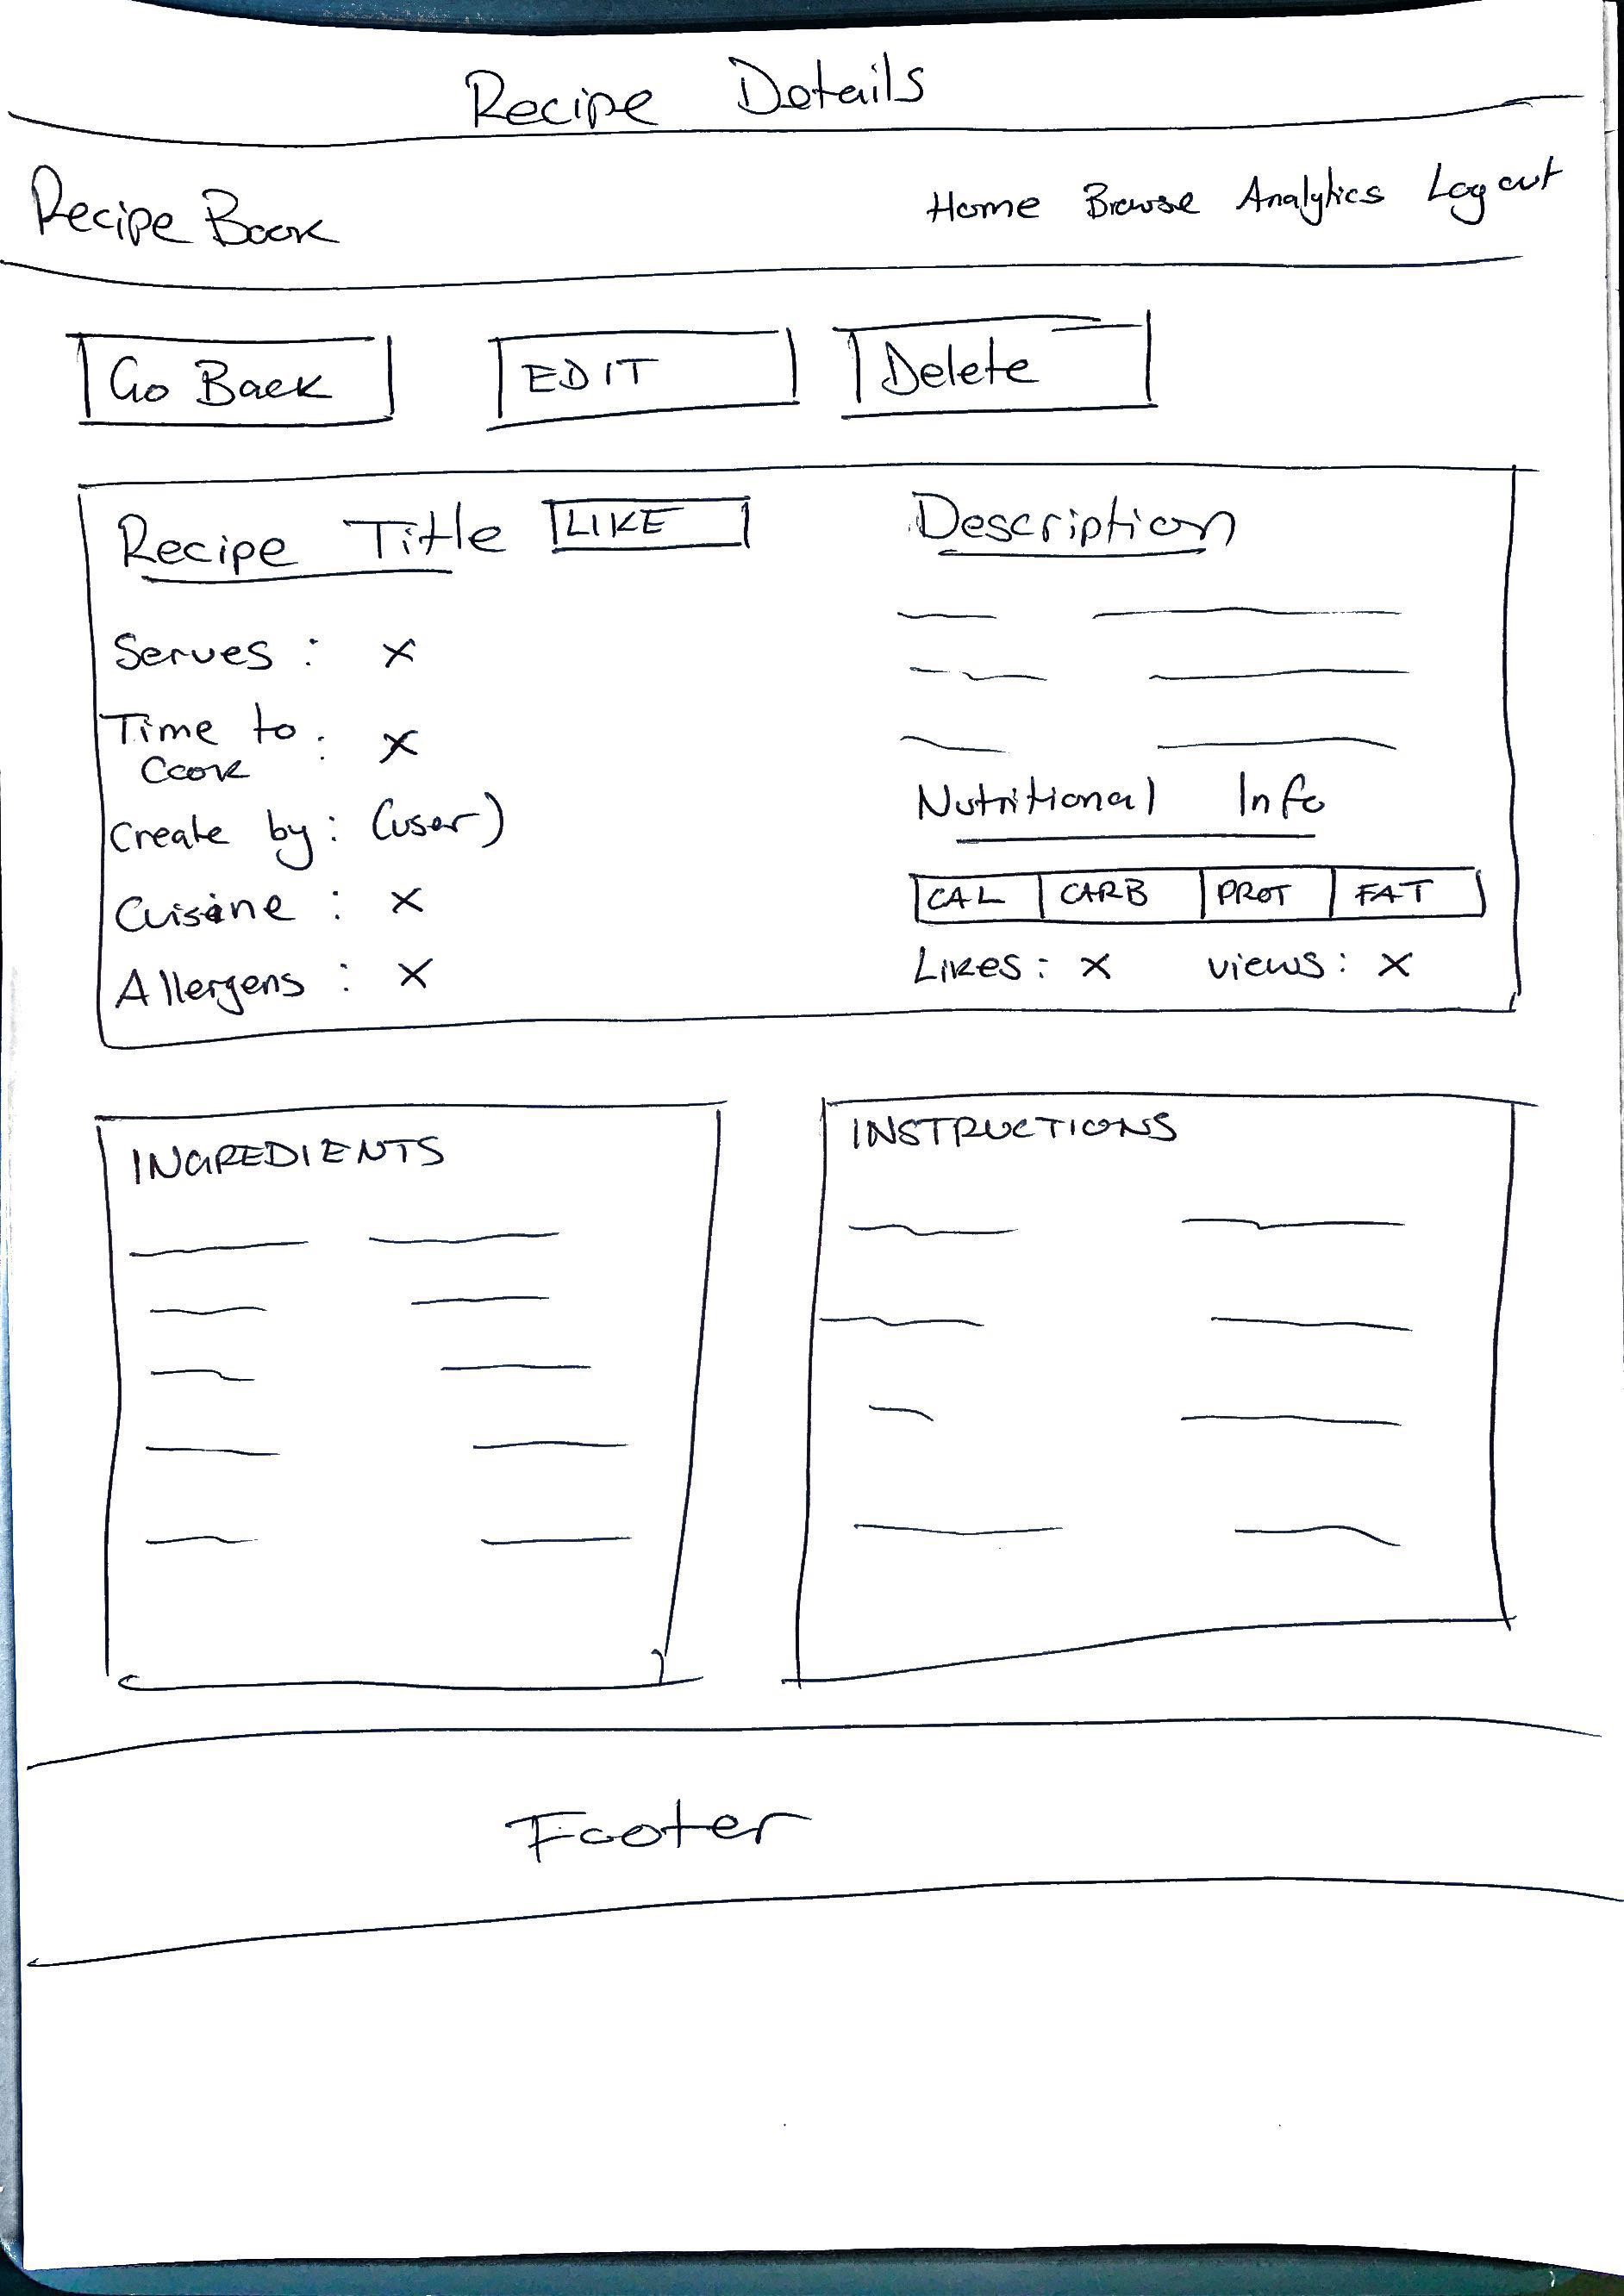 Recipe Details
Recipe Book Home Browse Analytics Log out
Go Back EDIT Delete
Recipe Title LIKE
Serves : x
Time to : x
Cook
Create by : (user)
Cuisine : x
Allergens : x
Description
Nutritional Info
CAL CARB PROT FAT
Likes : x views : x
INGREDIENTS
INSTRUCTIONS
Footer